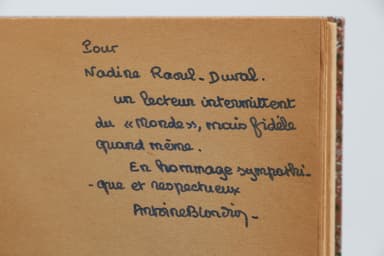 Pour
Nadine Raoul-Duval.
un lecteur intermittent
du «Monde», mais fidèle
quand même.
En hommage sympathi-
-que et respectueux
Antoine Blondin-